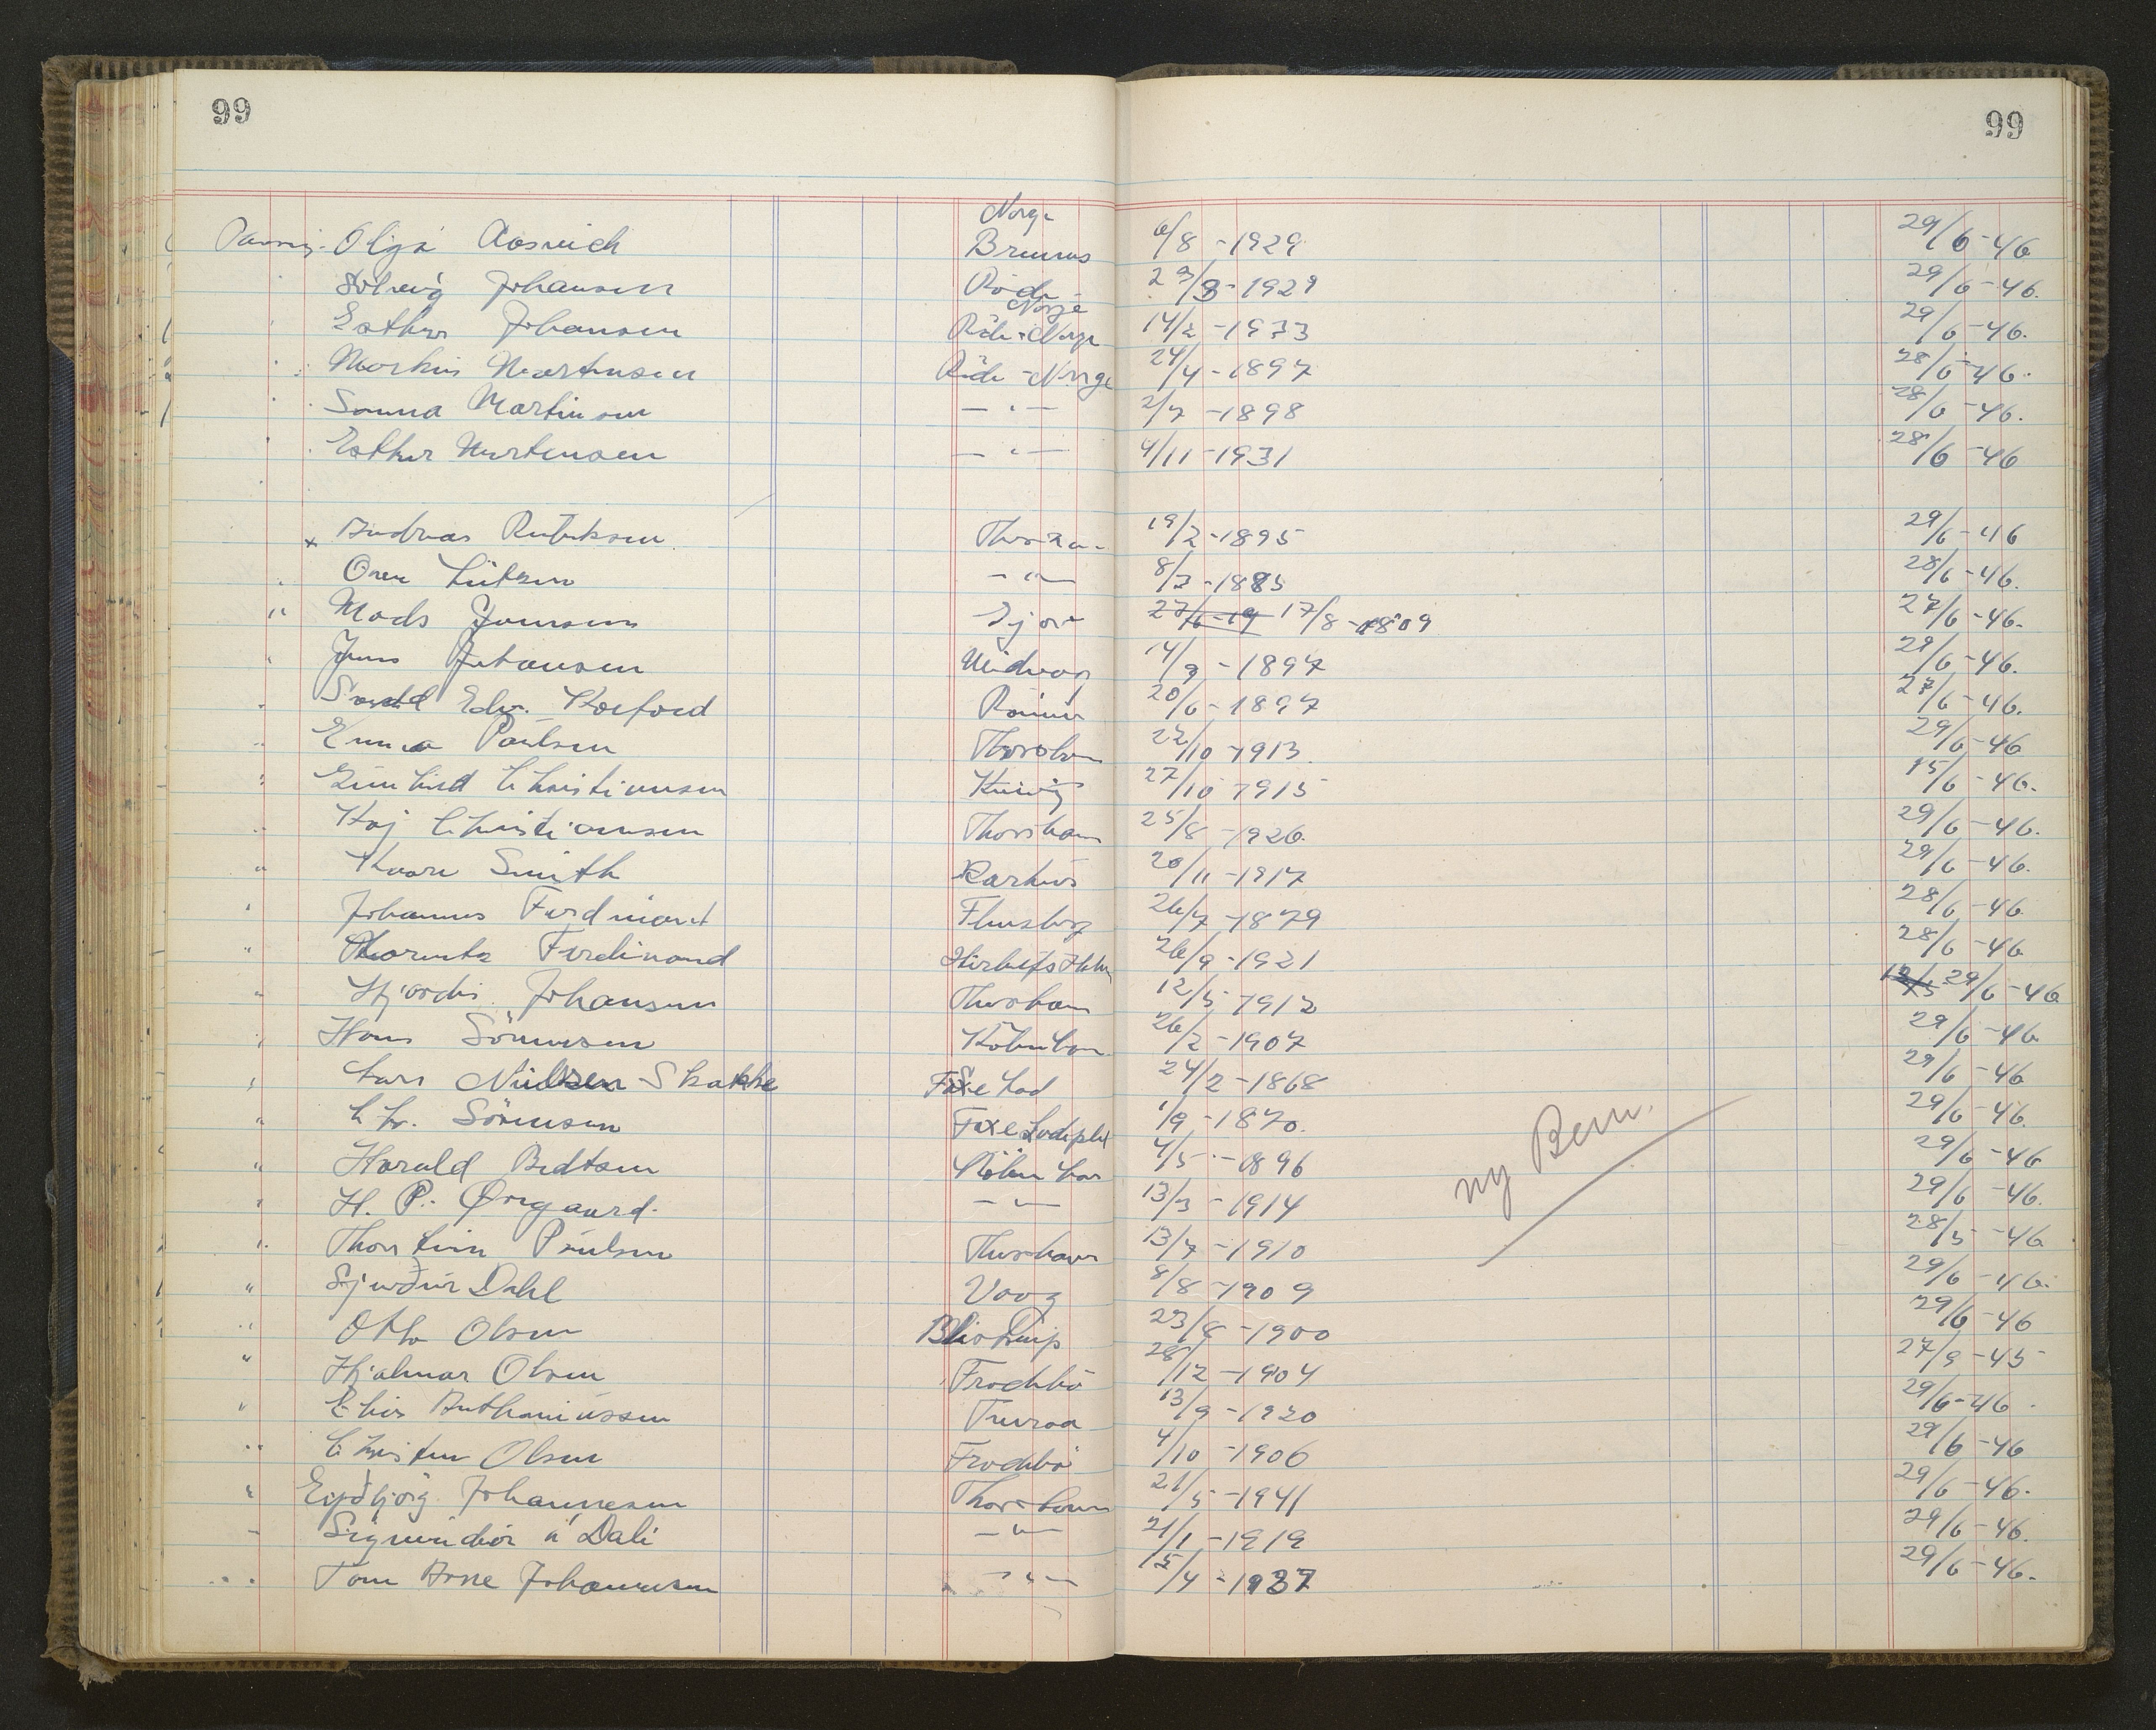 99 99
Norge
Olga Aosvich Brunnes 6/8 -1929 29/6 -46
Solveig Johansen Råde 29/3 -1929 29/6 -46.
Norge
Esther Johansen Råde - Norge 14/2 -1933 29/6 -46.
Markus Martinsen Råde - Norge 24/4 -1897 28/6 -46.
Sanna Martinsen — " — 2/7 -1898 28/6 -46.
Esther Martensen — " — 4/11 -1931 28/6 -46
x Andreas Thorshavn 19/2 -1895 29/6 -46
Lützen — " — 8/3 -1885 28/6 -46.
" Mads Joensen Gjov 27/6 -19 17/8 -1809 27/6 -46.
" Jens Johansen Midvaag 14/9 -1897 29/6 -46.
" Edv. Korford 20/6 -1897 27/6 -46.
" Emma Poulsen Thorshavn 22/10 -1913. 29/6 -46
" Christiansen Kvivig 27/10 -1915 15/6 -46.
" Kaj Christiansen Thorshavn 25/8 -1926. 29/6 -46.
" Kaare Smith Aarhus 20/11 -1917 29/6 -46.
" Johannes Ferdinand Flensborg 26/7 -1879 28/6 -46.
" Ferdinand 26/9 -1921 28/6 -46.
" Hjördis Johansen Thorshavn 12/5 -1912 29/6 -46
" Hans Sörensen Köbenhavn 26/2 -1907 29/6 -46.
" Lars Nielsen-Skakke Faxe Lad 24/2 -1868 29/6 -46
" Chr. Sörensen Faxe Ladeplds 1/9 -1870. 29/6 -46.
" Harald Bedtsen Köbenhavn 4/5 -1896 29/6 -46
ny Bem.
" H. P. Ørgaard. — " — 13/3 -1914 29/6 -46.
" Thorstein Poulsen Thorshavn 13/7 -1910 28/5 -46
" Sjurdur Dahl Vaag 8/8 -1909 29/6 -46.
" Otto Olsen 23/8 -1900 29/6 -46
" Hjalmar Olsen Frodebö 28/12 -1904 27/9 -45
" Elias Anthoniussen Tveraa 13/9 -1920 29/6 -46.
" Christen Olsen Frodebö 4/10 -1906 29/6 -46
" Eydbjörg Johannesen Thorshavn 21/5 -1941 29/6 -46.
" Sigmundur á Dali — " — 21/1 -1919 29/6 -46.
" Tom Arne Johannesen — " — 15/4 -1937 29/6 -46.